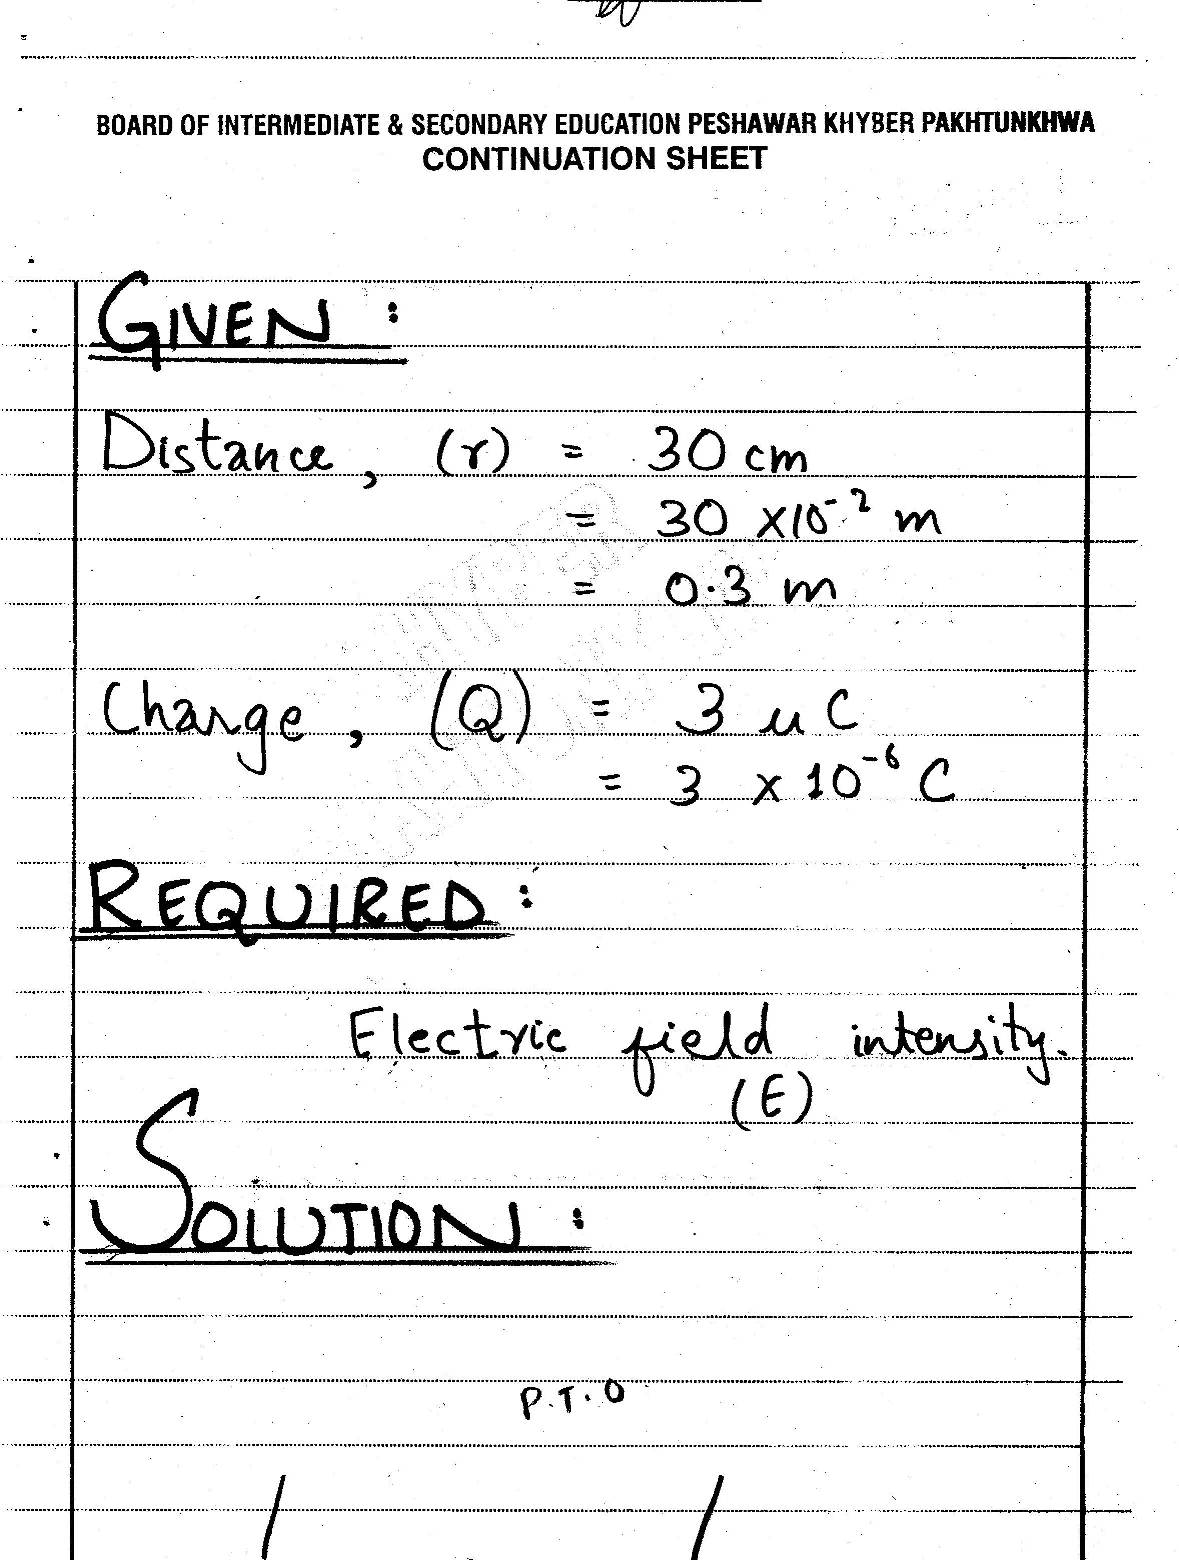 BOARD OF INTERMEDIATE & SECONDARY EDUCATION PESHAWAR KHYBER PAKHTUNKHWA
CONTINUATION SHEET
GIVEN :
Distance, (r) = 30 cm
= 30 ×10⁻² m
= 0.3 m
Charge, (Q) = 3 μC
= 3 × 10⁻⁶ C
REQUIRED :
Electric field intensity.
(E)
SOLUTION :
P.T.O